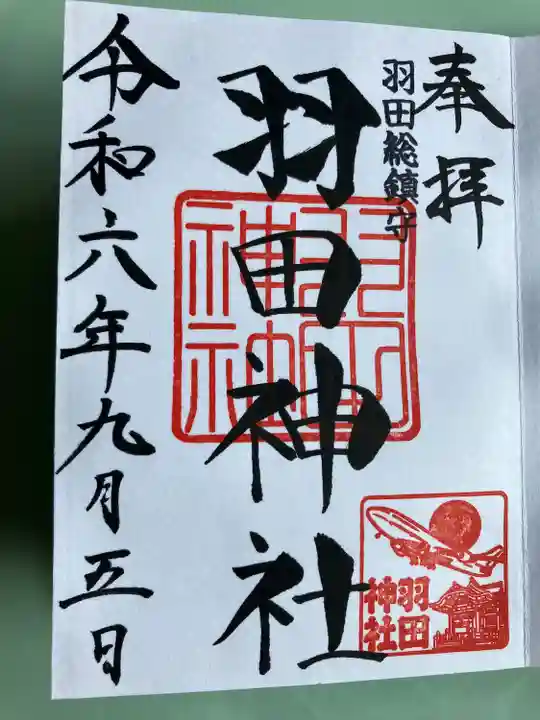 奉拝
羽田総鎮守
羽田神社
羽田
神社
令和六年九月五日